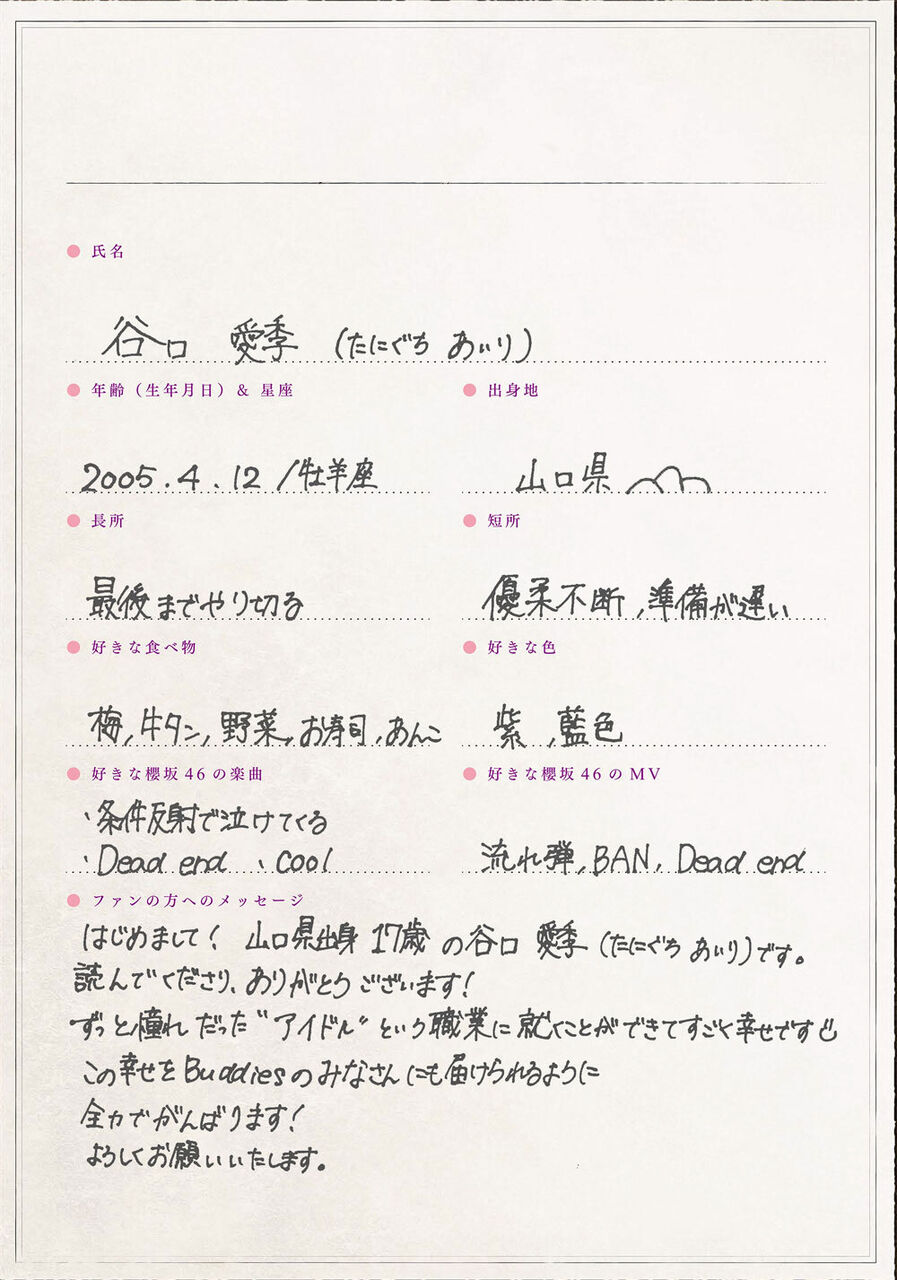 氏名
谷口 愛季 (たにぐち あいり)
年齢（生年月日）& 星座
出身地
2005.4.12 /牡羊座
山口県
長所
短所
最後までやり切る
優柔不断,準備が遅い
好きな食べ物
好きな色
梅,牛タン,野菜,お寿司,あんこ
紫,藍色
好きな櫻坂46の楽曲
好きな櫻坂46のMV
・条件反射で泣けてくる
・Dead end ・Cool
流れ弾,BAN,Dead end
ファンの方へのメッセージ
はじめまして! 山口県出身 17歳 の谷口 愛季 (たにぐち あいり)です。
読んでくださり、ありがとうございます!
ずっと憧れだった"アイドル"という職業に就くことができてすごく幸せです
この幸せをBuddiesのみなさんにも届けられるように
全力でがんばります!
よろしくお願いいたします。